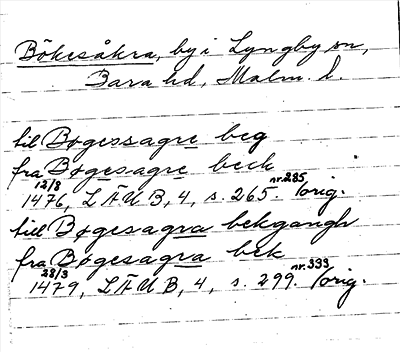 Bökesåkra, by i Lyngby sn,
Bara hd, Malm. l.
til Bøgessagre beg
fra Bøgesagre beck
12/8 nr. 285
1476, LÄUB, 4, s. 265. /orig.
till Bøgesagra bekgangh
fra Bøgesagra bek
28/3 nr. 333
1479, LÄUB, 4, s. 299. /orig.